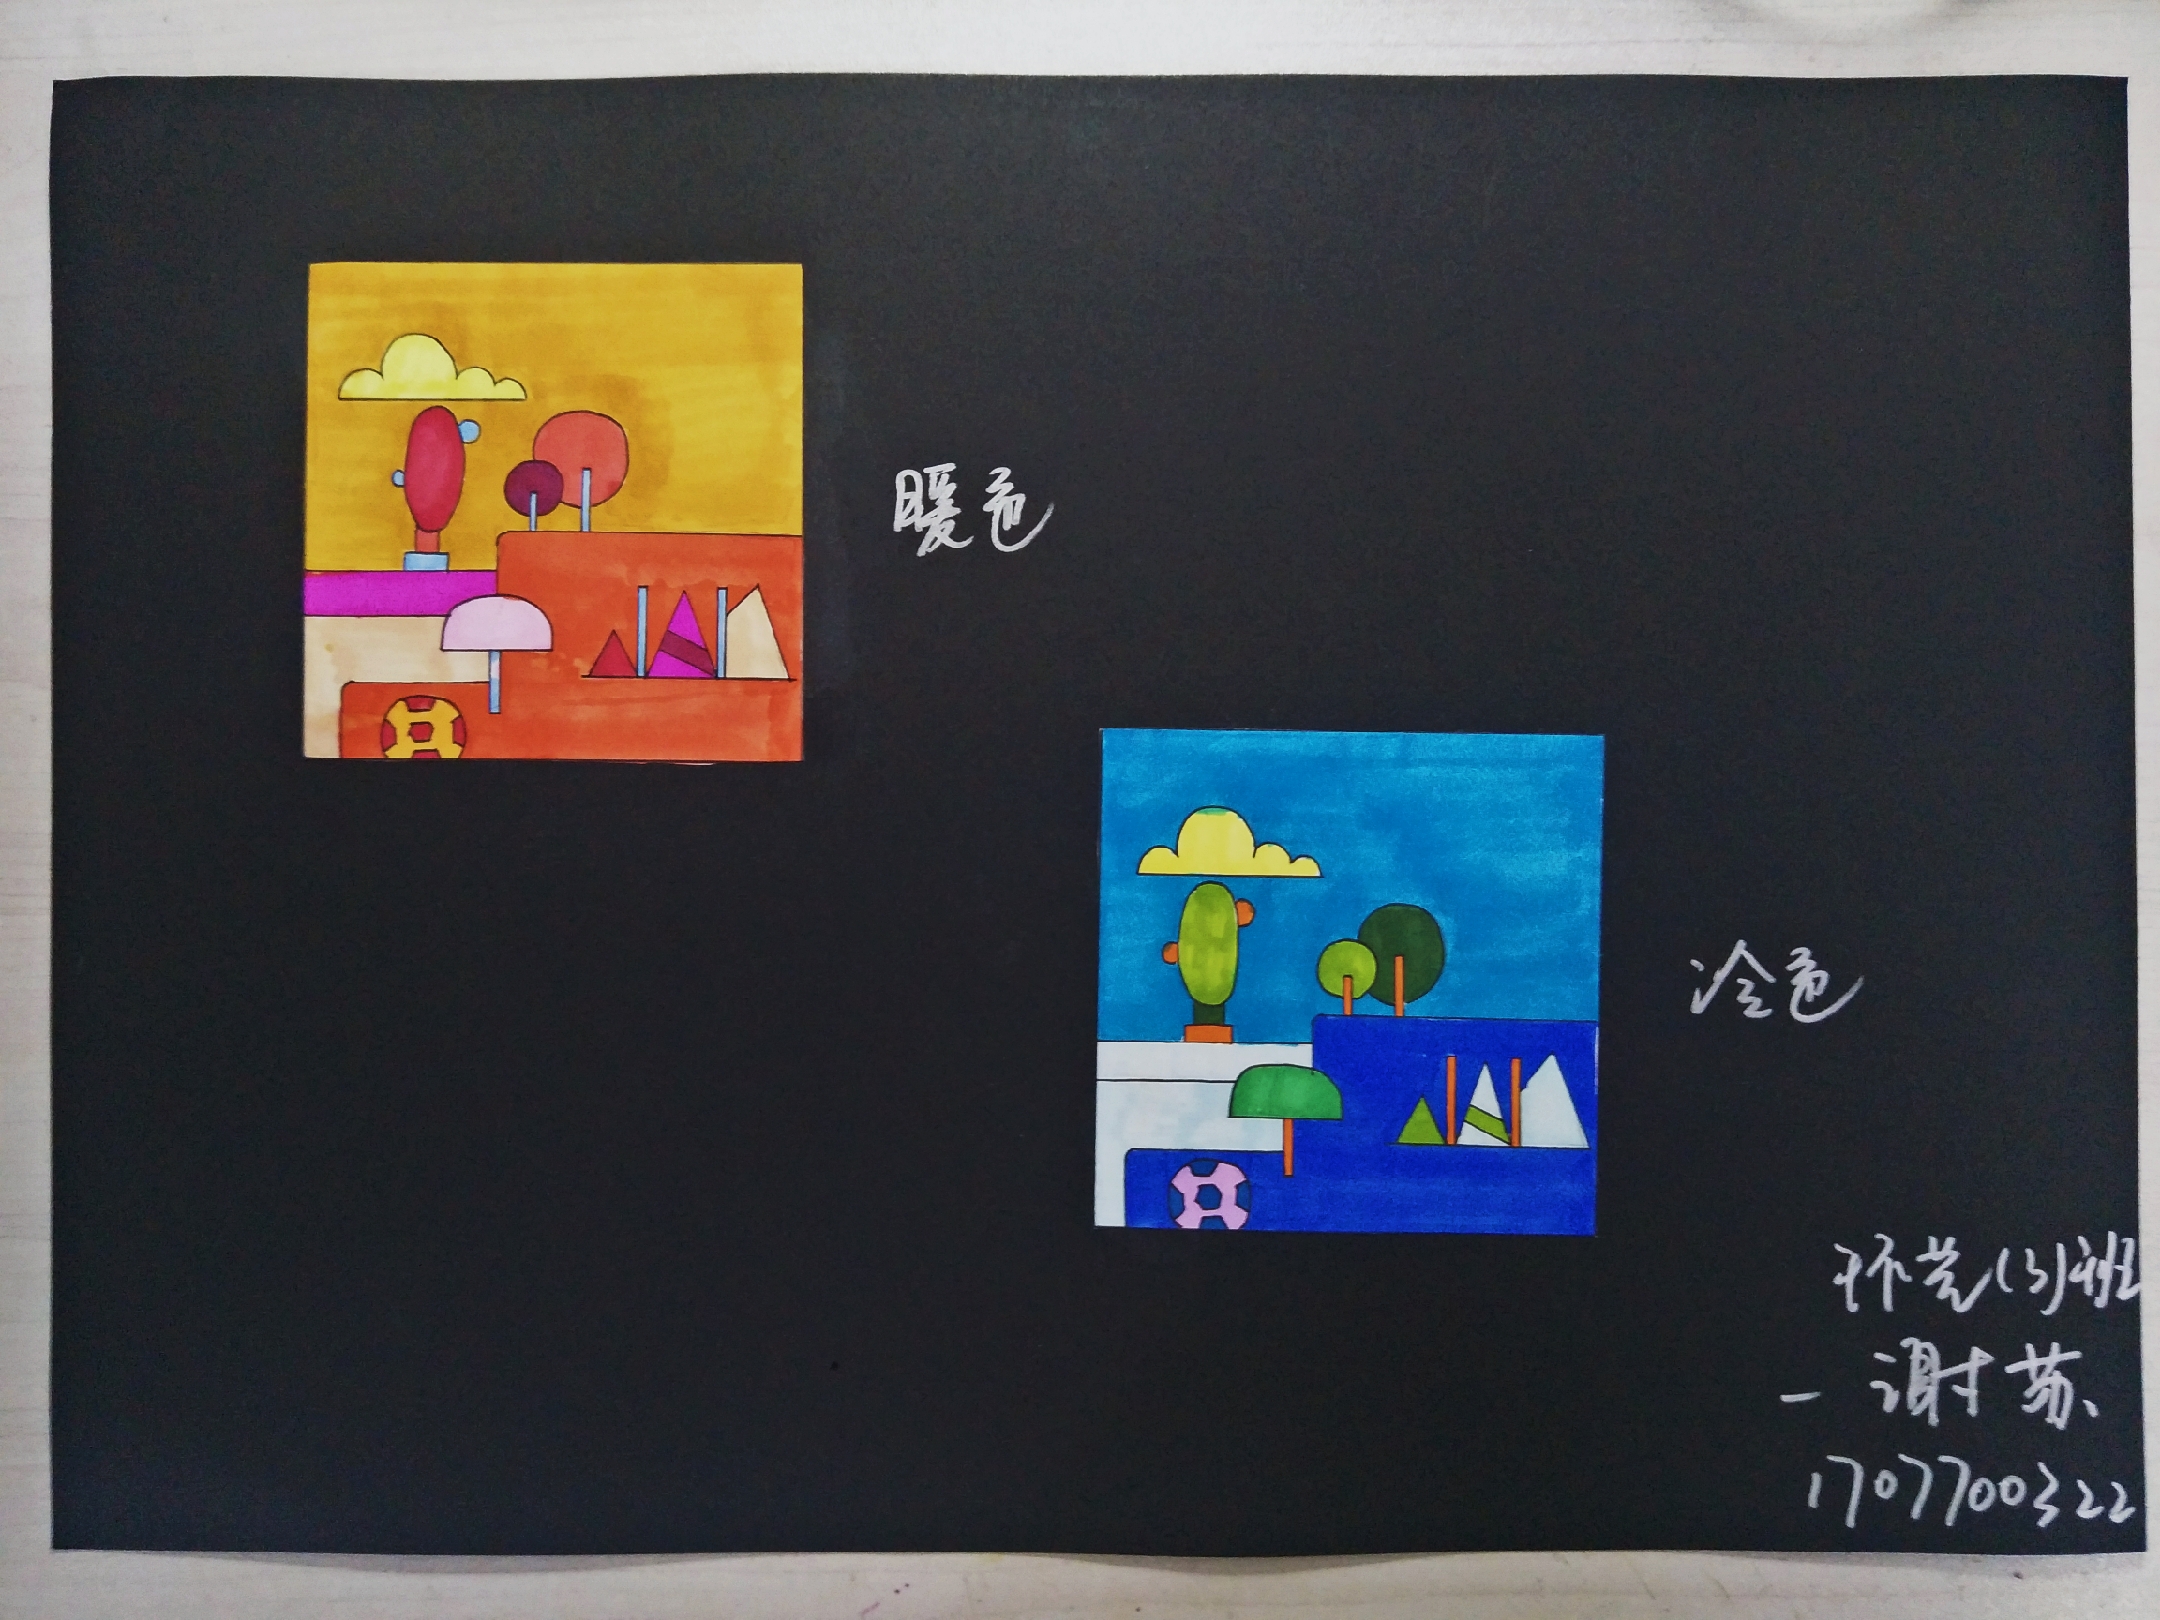 暖色
冷色
环艺(3)班
- 谢苏
1707700322